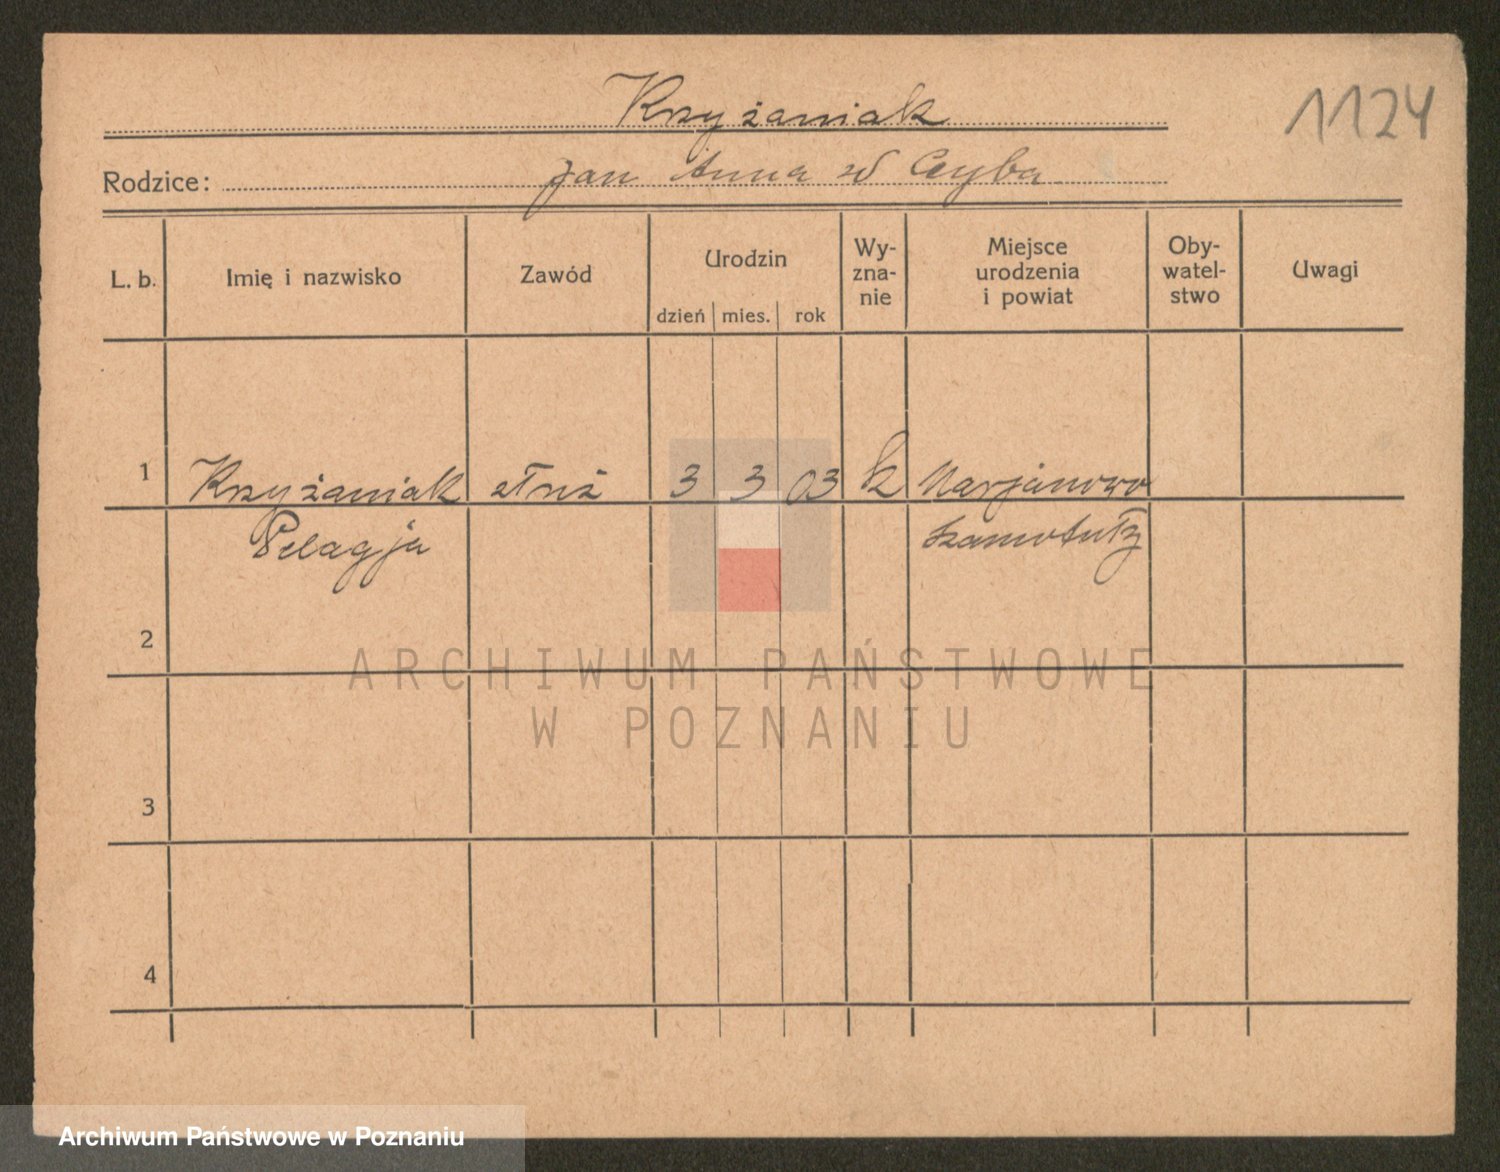 Krzyżaniak
1124
Rodzice: Jan Anna
L. b. Imię i nazwisko Zawód Urodzin Wy-zna-nie Miejsce urodzenia i powiat Oby-watel-stwo Uwagi
dzień mies. rok
1 Krzyżaniak 3 3 03 k Marjanowo
Pelagja
2
ARCHIWUM PAŃSTWOWE
W POZNANIU
3
4
Archiwum Państwowe w Poznaniu